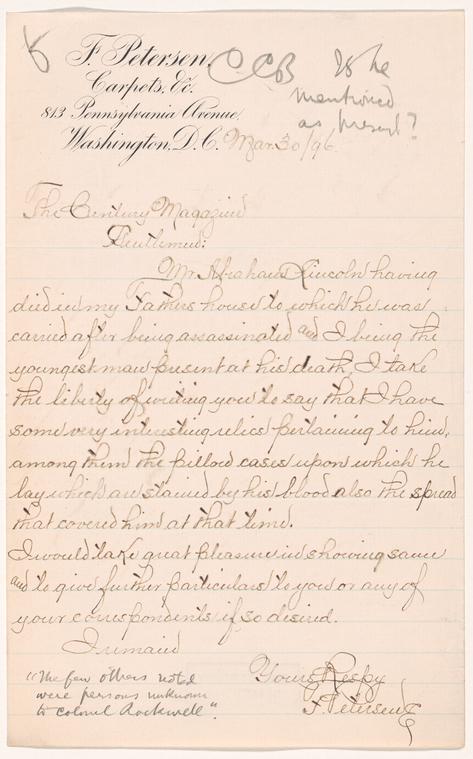 F. Petersen,
Carpets, &c.
813 Pennsylvania Avenue,
Washington, D.C. Mar. 30/96.
CCB Is he
mentioned
as present?
The Century Magazine
Gentlemen:
Mr. Abraham Lincoln having
died in my Fathers house to which he was
carried after being assassinated and I being the
youngest man present at his death, I take
the liberty of writing you to say that I have
some very interesting relics pertaining to him,
among them the pillow cases upon which he
lay which are stained by his blood also the spread
that covered him at that time.
I would take great pleasure in showing same
and to give further particulars to you or any of
your correspondents if so desired.
I remain
Yours Respy
F. Petersen
"The few others noted
were persons unknown
to Colonel Rockwell".